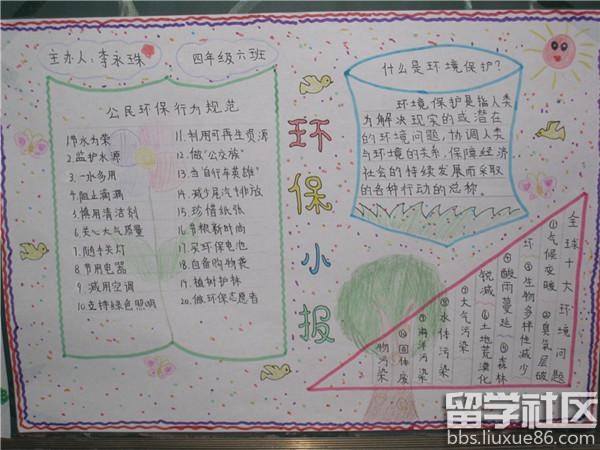 主办人:李永珠
四年级六班
公民环保行为规范
1.节水为荣
2.监护水源
3.一水多用
4.阻止滴漏
5.慎用清洁剂
6.关心大气质量
7.随手关灯
8.节用电器
9.减用空调
10.支持绿色照明
11.利用可再生资源
12.做"公交族"
13.当"自行车英雄"
14.减少尾汽排放
15.珍惜纸张
16.节粮新时尚
17.买环保电池
18.自备购物袋
19.植树护林
20.做环保志愿者
环保小报
什么是环境保护?
环境保护是指人类
为解决现实的或潜在
的环境问题,协调人类
与环境的关系,保障经济
社会的持续发展而采取
的各种行动的总称。
全球十大环境问题
①气候变暖
②臭氧层破
坏
③生物多样性减少
④酸雨蔓延
⑤森林
锐减
⑥土地荒漠化
⑦大气污染
⑧水体污染
⑨海洋污染
⑩固体废
物污染
留学社区
bbs.liuxue86.com